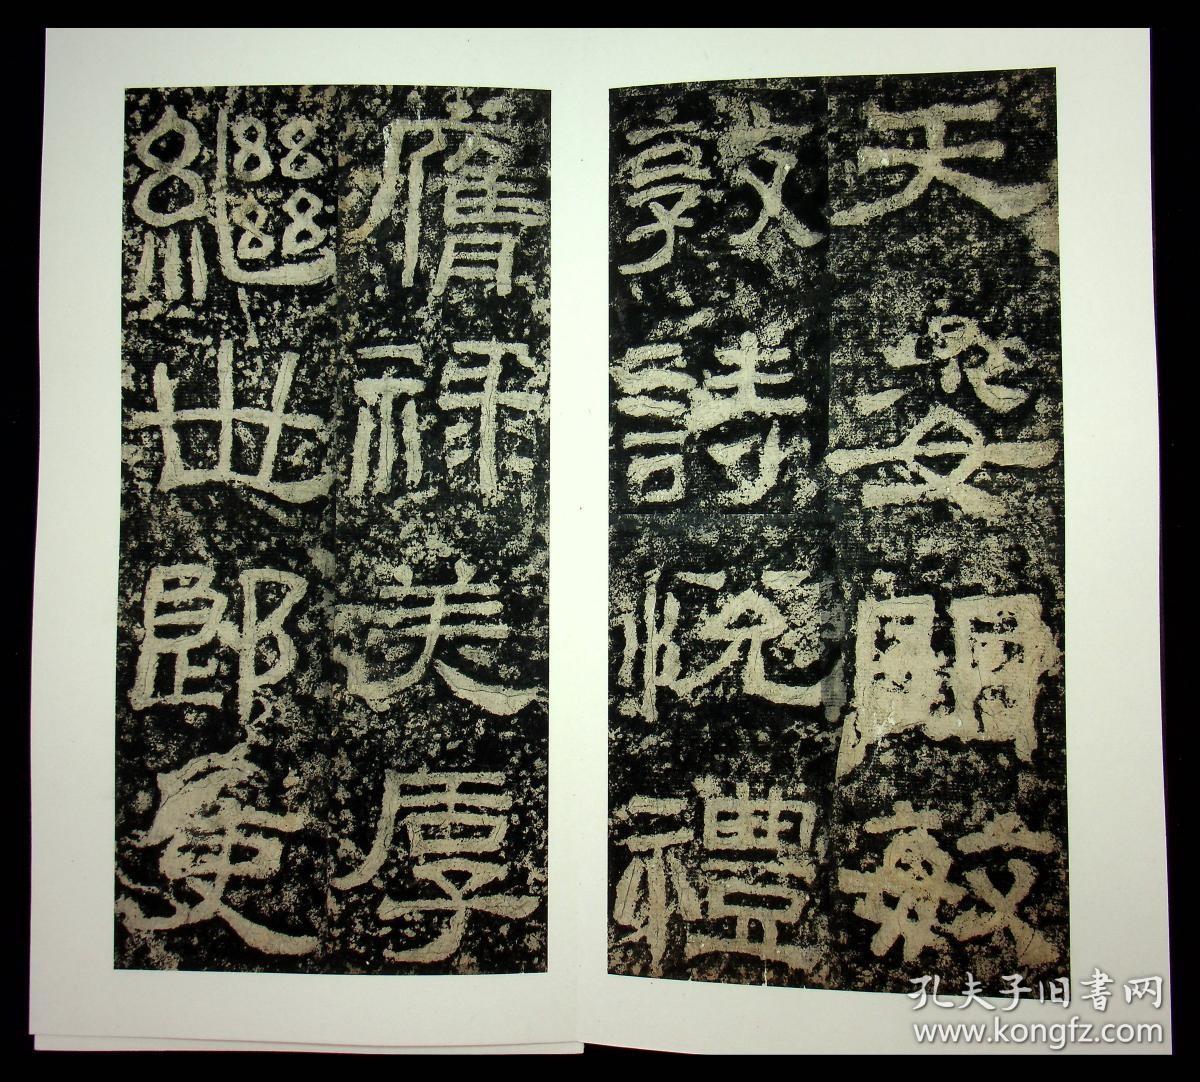 天姿明敏
敦詩悅禮
膺祿美厚
繼世郎吏
孔夫子旧書网
www.kongfz.com